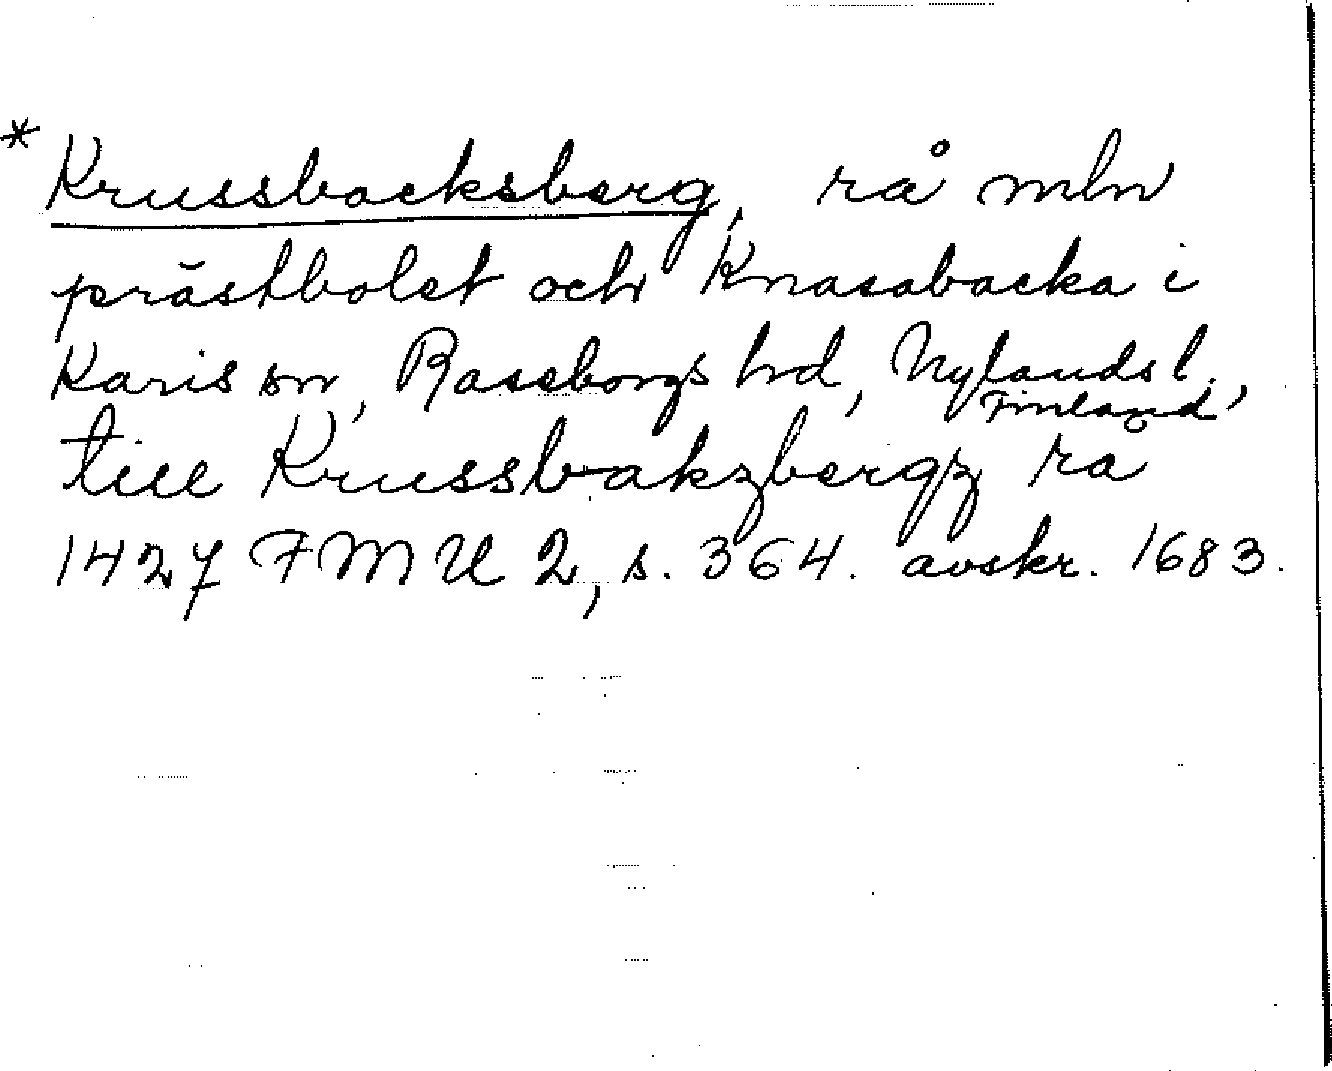 *Krussbacksberg, rå mln
prästbolet och Knasabacka i
Karis sn, Raseborgs hd, Nylands l.,
Finland,
till Krussbakzbergz rå
1427 FMU 2, s. 364. avskr. 1683.